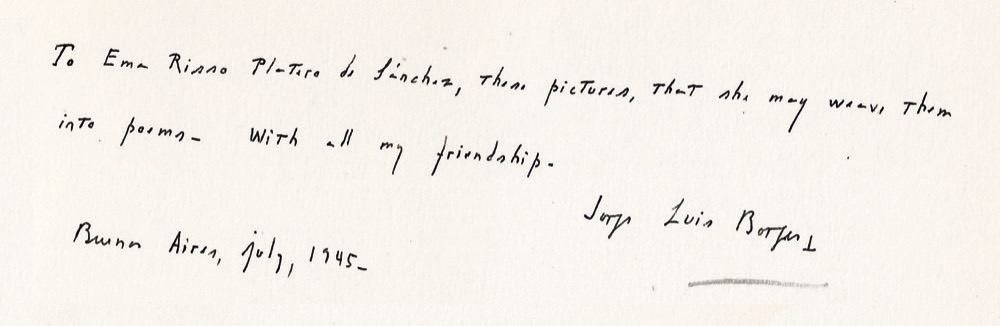 To Ema Risso Platero de Sánchez, these pictures, that she may weave them
into poems. With all my friendship.
Jorge Luis Borges
Buenos Aires, july, 1945.